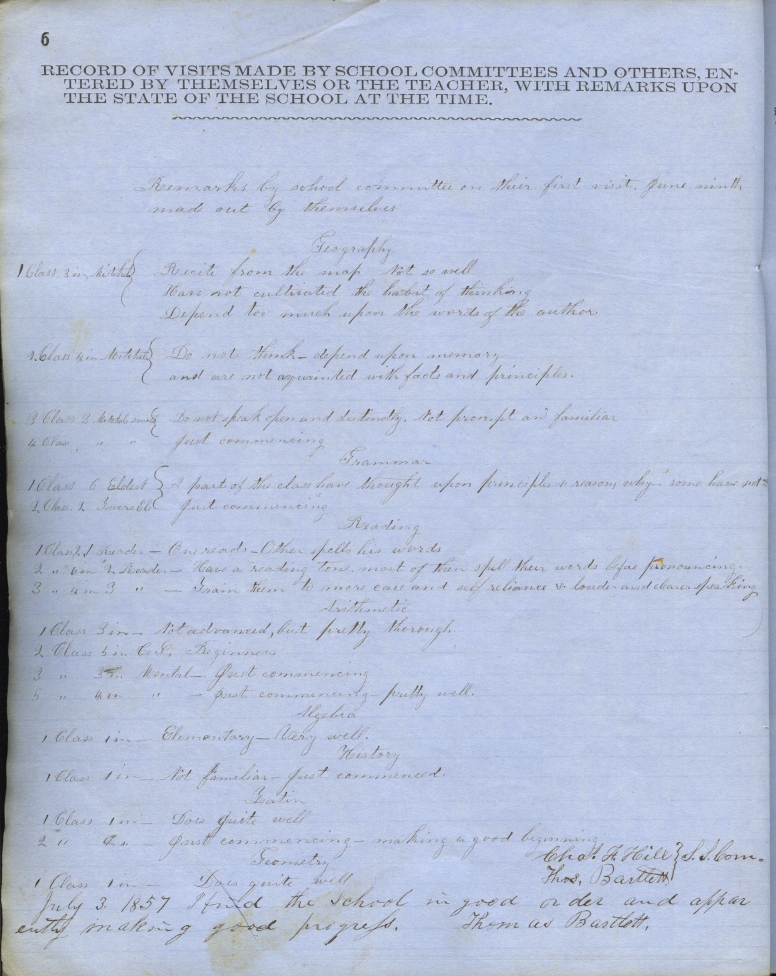 6
RECORD OF VISITS MADE BY SCHOOL COMMITTEES AND OTHERS, EN-
TERED BY THEMSELVES OR THE TEACHER, WITH REMARKS UPON
THE STATE OF THE SCHOOL AT THE TIME.
Remarks by school committee on their first visit, June ninth
made out by themselves
Geography
1 Class. 3 in Mitchel Recite from the map Not so well
Have not cultivated the habit of thinking
Depend too much upon the words of the author
2 Class 4 in Mitchel Do not think - depend upon memory
and are not aquainted with facts and principles.
3 Class 2 Do not speak open and distinctly. Not prompt and familiar
4 Class " " Just commencing
Grammar
1 Class 6 A part of the class have thought upon principles & reasons why - some have not
2 Class 2 Just commencing
Reading
1 Class 2 1 Reader - One reads - Other spells his words
2 " 6 in 2 Reader - Have a reading tone, most of them spell their words before pronouncing.
3 " 4 in 3 " - Train them to more care and self reliance & louder and clearer speaking
Arithmetic
1 Class 3 in - Not advanced, but pretty thorough
2 Class 5 in Beginners
3 " Mental - Just commencing
5 " 4 in " - Just commencing - pretty well.
Algebra
1 Class 1 in - Elementary - Very well.
History
1 Class 1 in - Not familiar - Just commenced.
Latin
1 Class 1 in - Does quite well
2 " " Just commencing - making a good beginning
Geometry
Chas. F. Hill } S. S. Com.
1 Class 1 in - Does quite well
Thos. Bartlett
July 3. 1857 I find the school in good order and appar
ently making good progress. Thomas Bartlett.